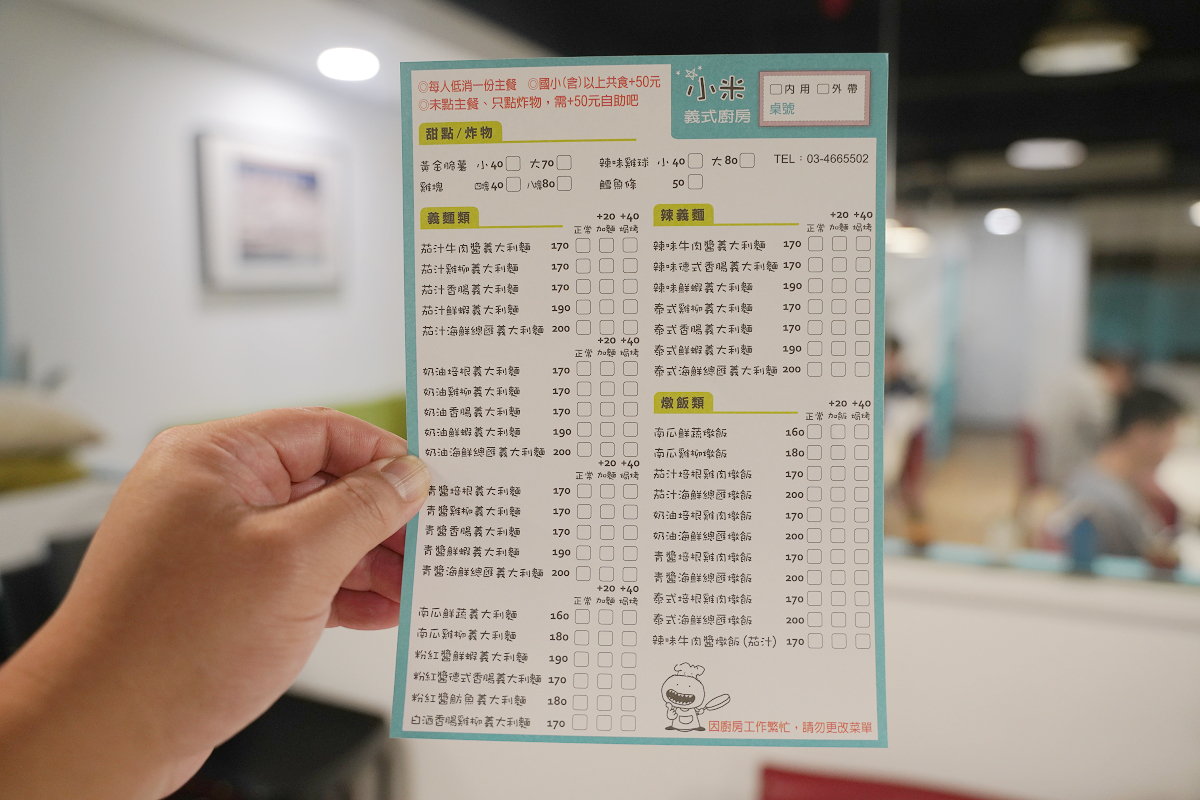 ◎每人低消一份主餐 ◎國小(含)以上共食+50元
◎未點主餐、只點炸物，需+50元自助吧
小米
義式廚房
□內用 □外帶
桌號
TEL：03-4665502
甜點/炸物
黃金脆薯 小40□ 大70□
雞塊 四塊40□ 八塊80□
辣味雞球 小40□ 大80□
鱈魚條 50□
義麵類
+20 +40
正常 加麵 焗烤
茄汁牛肉醬義大利麵 170 □ □ □
茄汁雞柳義大利麵 170 □ □ □
茄汁香腸義大利麵 170 □ □ □
茄汁鮮蝦義大利麵 190 □ □ □
茄汁海鮮總匯義大利麵 200 □ □ □
+20 +40
正常 加麵 焗烤
奶油培根義大利麵 170 □ □ □
奶油雞柳義大利麵 170 □ □ □
奶油香腸義大利麵 170 □ □ □
奶油鮮蝦義大利麵 190 □ □ □
奶油海鮮總匯義大利麵 200 □ □ □
+20 +40
正常 加麵 焗烤
青醬培根義大利麵 170 □ □ □
青醬雞柳義大利麵 170 □ □ □
青醬香腸義大利麵 170 □ □ □
青醬鮮蝦義大利麵 190 □ □ □
青醬海鮮總匯義大利麵 200 □ □ □
+20 +40
正常 加麵 焗烤
南瓜鮮蔬義大利麵 160 □ □ □
南瓜雞柳義大利麵 180 □ □ □
粉紅醬鮮蝦義大利麵 190 □ □ □
粉紅醬德式香腸義大利麵 170 □ □ □
粉紅醬魴魚義大利麵 180 □ □ □
白酒香腸雞柳義大利麵 170 □ □ □
辣義麵
+20 +40
正常 加麵 焗烤
辣味牛肉醬義大利麵 170 □ □ □
辣味德式香腸義大利麵 170 □ □ □
辣味鮮蝦義大利麵 190 □ □ □
泰式雞柳義大利麵 170 □ □ □
泰式香腸義大利麵 170 □ □ □
泰式鮮蝦義大利麵 190 □ □ □
泰式海鮮總匯義大利麵 200 □ □ □
燉飯類
+20 +40
正常 加飯 焗烤
南瓜鮮蔬燉飯 160 □ □ □
南瓜雞柳燉飯 180 □ □ □
茄汁培根雞肉燉飯 170 □ □ □
茄汁海鮮總匯燉飯 200 □ □ □
奶油培根雞肉燉飯 170 □ □ □
奶油海鮮總匯燉飯 200 □ □ □
青醬培根雞肉燉飯 170 □ □ □
青醬海鮮總匯燉飯 200 □ □ □
泰式培根雞肉燉飯 170 □ □ □
泰式海鮮總匯燉飯 200 □ □ □
辣味牛肉醬燉飯(茄汁) 170 □ □ □
因廚房工作繁忙，請勿更改菜單